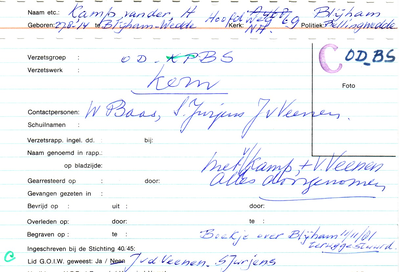 Naam etc.: Kamp, vander. H Hoofdweg 69 Blijham
Geboren: te Blijham-Wedde Kerk: NH. Politiek: Bellingwedde
Verzetsgroep : OD. KPBS
Verzetswerk : Kern
C OD_BS
Foto
Contactpersonen: W Baas, S. Jurjens J v Veenen.
Schuilnamen :
Verzetsrapp. ingel. dd. : bij:
Naam genoemd in rapp.:
op bladzijde: met v/Kamp, + V. Veenen
Gearresteerd op : door: alles doorgenomen
Gevangen gezeten in :
Bevrijd op : uit : door:
Overleden op: door: te :
Begraven op : te : "Boekje over Blijham" 11/11/01
teruggestuurd.
Ingeschreven bij de Stichting 40.45:
Lid G.O.I.W. geweest: Ja / Neen J v d Veenen. S Jurjens